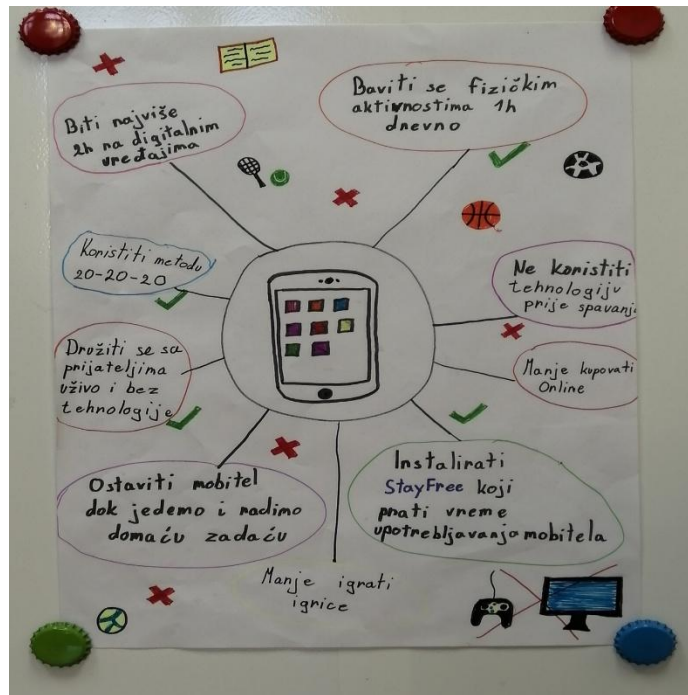 Biti najviše
2h na digitalnim
uređajima
Baviti se fizičkim
aktivnostima 1h
dnevno
Koristiti metodu
20-20-20
Ne koristiti
tehnologiju
prije spavanja
Družiti se sa
prijateljima
uživo i bez
tehnologije
Manje kupovati
Online
Ostaviti mobitel
dok jedemo i radimo
domaću zadaću
Instalirati
StayFree koji
prati vreme
upotrebljavanja mobitela
Manje igrati
igrice